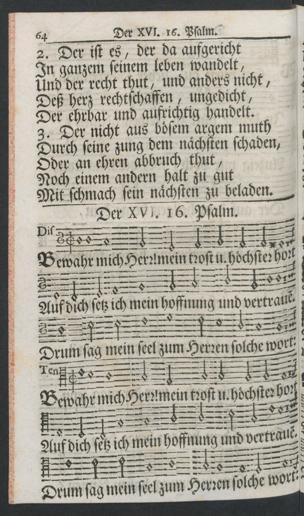 64 Der XVI. 16. Psalm.
2. Der ist es, der da aufgericht
In ganzem seinem leben wandelt,
Und der recht thut, und anders nicht,
Deß herz rechtschaffen, ungedicht,
Der ehrbar und aufrichtig handelt.
3. Der nicht aus bösem argem muth
Durch seine zung dem nächsten schaden,
Oder an ehren abbruch thut,
Noch einem andern halt zu gut
Mit schmach sein nächsten zu beladen.
Der XVI. 16. Psalm.
Dis
Bewahr mich Herr! mein trost u. höchster hort
Auf dich setz ich mein hoffnung und vertraue.
Drum sag mein seel zum Herren solche wort:
Ten
Bewahr mich Herr! mein trost u. höchster hort
Auf dich setz ich mein hoffnung und vertraue.
Drum sag mein seel zum Herren solche wort.